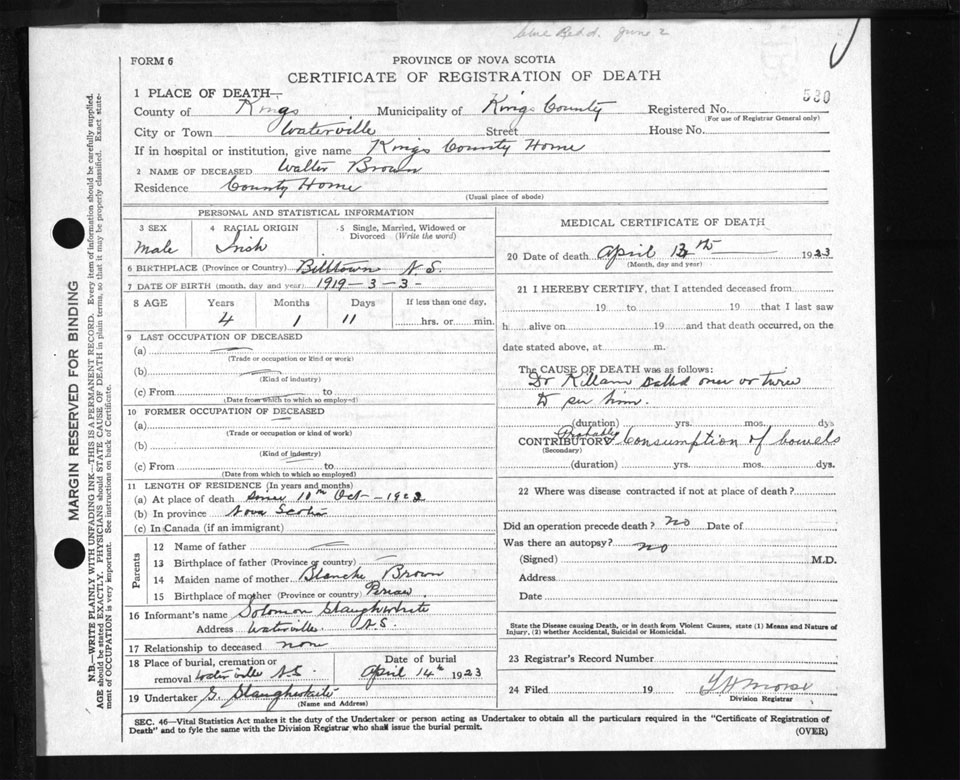 Blue Red d. June 2
FORM 6
PROVINCE OF NOVA SCOTIA
CERTIFICATE OF REGISTRATION OF DEATH
530
1 PLACE OF DEATH—
County of Kings Municipality of Kings County Registered No.
(For use of Registrar General only)
City or Town Waterville Street House No.
If in hospital or institution, give name Kings County Home
2 NAME OF DECEASED Walter Brown
Residence County Home
(Usual place of abode)
PERSONAL AND STATISTICAL INFORMATION
3 SEX 4 RACIAL ORIGIN 5 Single, Married, Widowed or Divorced (Write the word)
Male Irish
6 BIRTHPLACE (Province or Country) Billtown N.S.
7 DATE OF BIRTH (month, day and year) 1919-3-3-
8 AGE Years Months Days If less than one day,
4 1 11 hrs. or min.
9 LAST OCCUPATION OF DECEASED
(a)
(Trade or occupation or kind or work)
(b)
(Kind of industry)
(c) From to
(Date from which to which so employed)
10 FORMER OCCUPATION OF DECEASED
(a)
(Trade or occupation or kind of work)
(b)
(Kind of industry)
(c) From to
(Date from which to which so employed)
11 LENGTH OF RESIDENCE (In years and months)
(a) At place of death since 11th Oct - 1922
(b) In province Nova Scotia
(c) In Canada (if an immigrant)
Parents
12 Name of father
13 Birthplace of father (Province or country)
14 Maiden name of mother Blanche Brown
15 Birthplace of mother (Province or country)
16 Informant's name Solomon Slaughwhite
Address Waterville N.S.
17 Relationship to deceased none
18 Place of burial, cremation or removal Waterville N.S.
Date of burial
April 14th 1923
19 Undertaker S. Slaughwhite
(Name and Address)
MEDICAL CERTIFICATE OF DEATH
20 Date of death April 13th 1923
(Month, day and year)
21 I HEREBY CERTIFY, that I attended deceased from
19 to 19 that I last saw
h alive on 19 and that death occurred, on the
date stated above, at m.
The CAUSE OF DEATH was as follows:
Dr Killam called once or twice
to see him.
(duration) yrs. mos. dys
Probably
CONTRIBUTORY Consumption of bowels
(Secondary)
(duration) yrs. mos. dys.
22 Where was disease contracted if not at place of death?
Did an operation precede death? no Date of
Was there an autopsy? no
(Signed) M.D.
Address
Date
State the Disease causing Death, or in death from Violent Causes, state (1) Means and Nature of
Injury, (2) whether Accidental, Suicidal or Homicidal.
23 Registrar's Record Number
24 Filed 19
Division Registrar
SEC. 46—Vital Statistics Act makes it the duty of the Undertaker or person acting as Undertaker to obtain all the particulars required in the "Certificate of Registration of
Death" and to fyle the same with the Division Registrar who shall issue the burial permit.
(OVER)
MARGIN RESERVED FOR BINDING
N.B.—WRITE PLAINLY WITH UNFADING INK—THIS IS A PERMANENT RECORD. Every item of information should be carefully supplied.
AGE should be stated EXACTLY. PHYSICIANS should STATE CAUSE OF DEATH in plain terms, so that it may be properly classified. Exact state-
ment of OCCUPATION is very important. See instructions on back of Certificate.